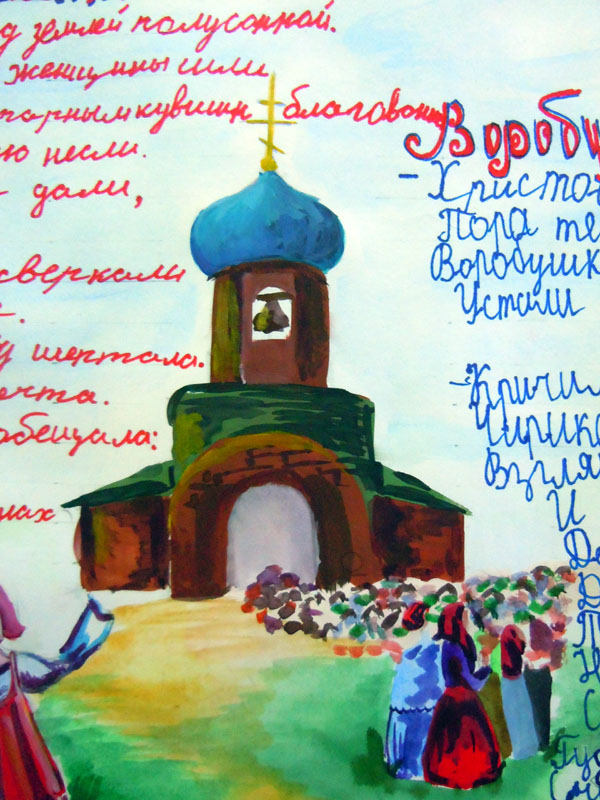 д землей полусонной.
женщины шли
тарным кувшин благовони
ю несли.
дали,
сверкали
у шептала.
ечта.
обещала:
ах
Воробу
- Христо
Пора те
Воробушк
Устали
- Кричил
Чирика
Взгля
И